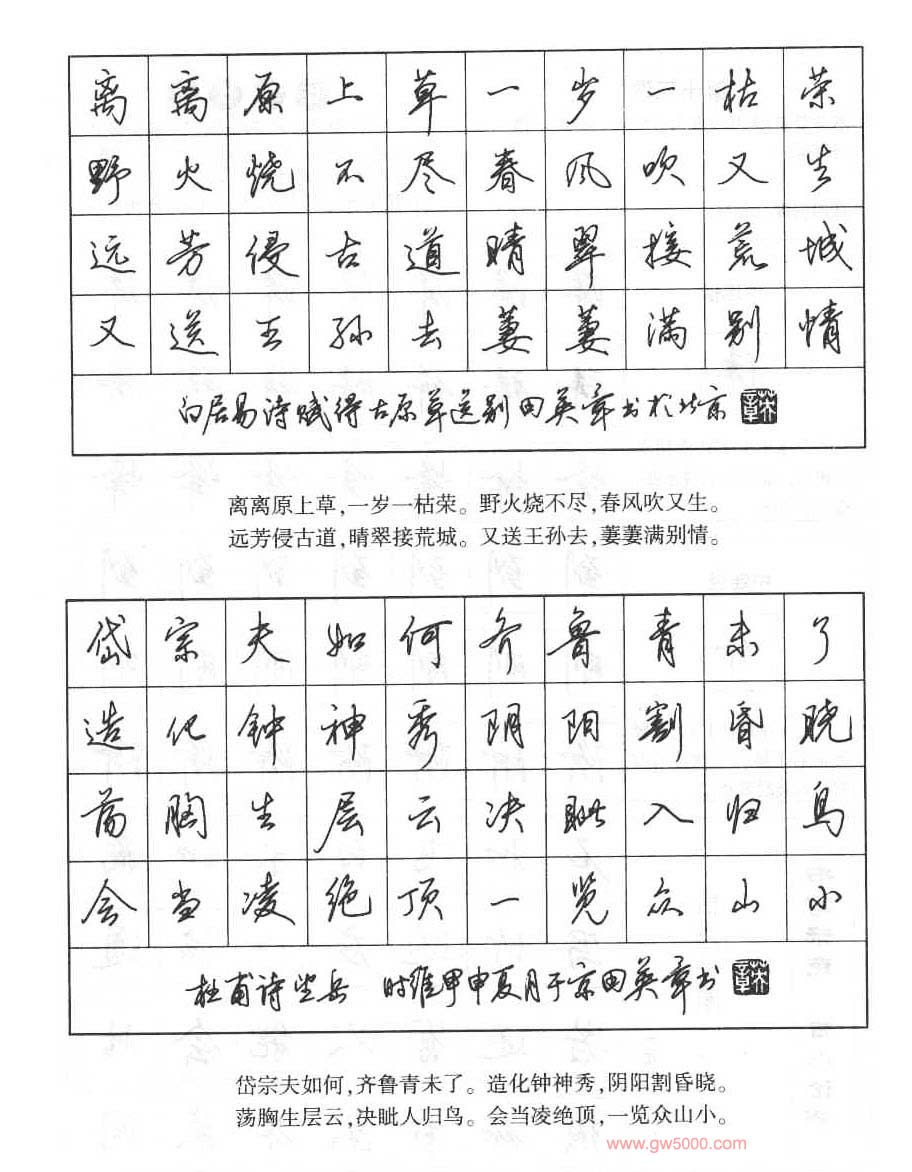 离离原上草一岁一枯荣
野火烧不尽春风吹又生
远芳侵古道晴翠接荒城
又送王孙去萋萋满别情
白居易诗赋得古原草送别田英章书于北京 英章
离离原上草,一岁一枯荣。野火烧不尽,春风吹又生。
远芳侵古道,晴翠接荒城。又送王孙去,萋萋满别情。
岱宗夫如何齐鲁青未了
造化钟神秀阴阳割昏晓
荡胸生层云决眦入归鸟
会当凌绝顶一览众山小
杜甫诗望岳 时维甲申夏月于京田英章书 英章
岱宗夫如何,齐鲁青未了。造化钟神秀,阴阳割昏晓。
荡胸生层云,决眦人归鸟。会当凌绝顶,一览众山小。
www.gw5000.com